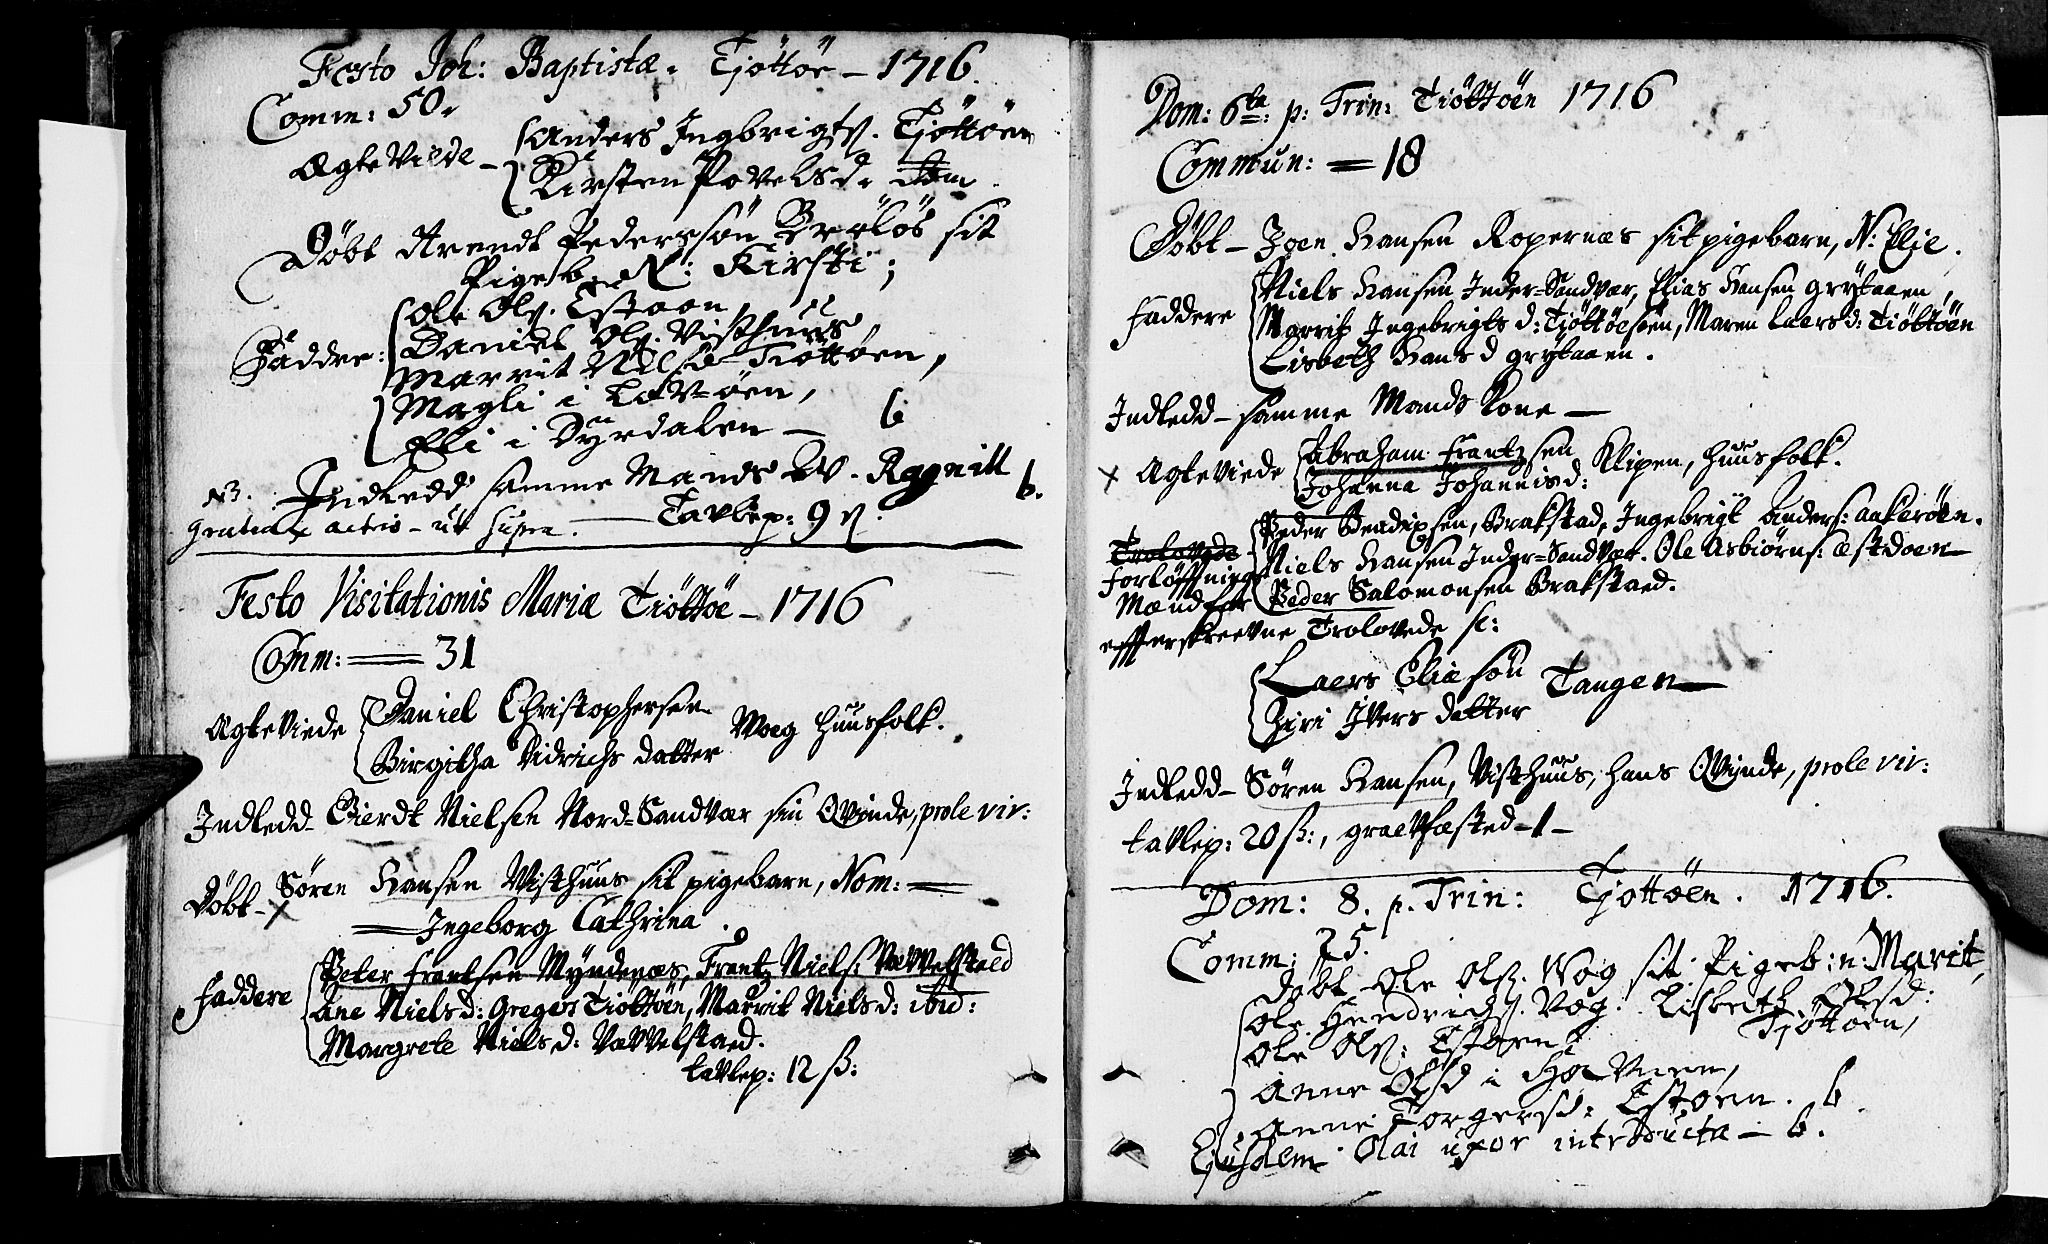 Festo Joh: Baptistæ. Tjöttöe – 1716.
Comm: 50.
Ægte Viede – Anders Ingbrigts. Tjöttöen
Kirsten Povelsd.
Döbt Arendt Pederssön Bröløs sit
Pigeb. N: Kirsti;
Faddre: Ole Ols. Estoen
Daniel Ols. Visthuus
Marrit Nilsd Tiöttöen,
Magli i Løvöen,
Elli i Dyrdalen – b
NB. Indledd samme Mands Qv. Ragnill b.
actis – ut supra. – Tavlep: 9 ß.
Festo Visitationis Mariæ Tiöttöe – 1716
Comm: = 31
Ægte Viede Daniel Christophersen
Birgitha Didrichs datter Woeg Huusfolk.
Indledd – Gierdt Nielsen Nord=Sandvær sin Qvinde, prole vir:
Döbt – Sören Hansen Wisthuus sit pigebarn, Nom: =
= Ingeborg Cathrina.
Faddere Peter Frantsen Myndenæs, Frantz Niels: Vævelstaed
Ane Nielsd: Gregers Tiöttöen, Marrit Nielsd: ibid:
Margrete Nielsd: Vævelstaed.
tavlep: 12 ß:
Dom: 6ta: p: Trin: Tiöttöen 1716
Commun: = 18
Döbt – Joen Hansen Ropernæs sit pigebarn, N: Elie.
Faddere Niels Hansen Inder=Sandvær, Elias Hansen grytaaen,
Marrit Ingebrigtsd: Tjöttöen, Maren Laersd: Tiöttöen
Lisbeth Hansd grytaaen.
Indledd – samme Mands Kone –
x Ægteviede Abraham Frantzsen
Johanna Johannisd: Klipen, Huusfolk.
Trolovede Peder Bendixsen, Brakstad, Ingebrigt Anders: aakeröen.
Forlöffnings Niels Hansen Inder=Sandvær. Ole Asbiörns: æstdoen
Mænd for Peder Salomonsen Brakstaed.
effterskreevne Trolovede sc:
Laers Eliesön
Ziri Ivers datter Tangen
Indledd – Sören Hansen, Visthuus, hans Qvinde, prole vir:
tavlep: 20 ß:, graevfæsted – 1 –
Dom: 8. p. Trin: Tjottöen. 1716.
Comm: 25.
Döbt Ole Ols. Wog sit Pigeb: n: Marit,
Ole Hendrichs. Vog. Lisbeth Olsd:
Ole Ols: Estoen Tjöttoen,
Anne Olsd i
Anne Torgersd: Estoen. b
Ejusdem Olai uxor introducta – b.